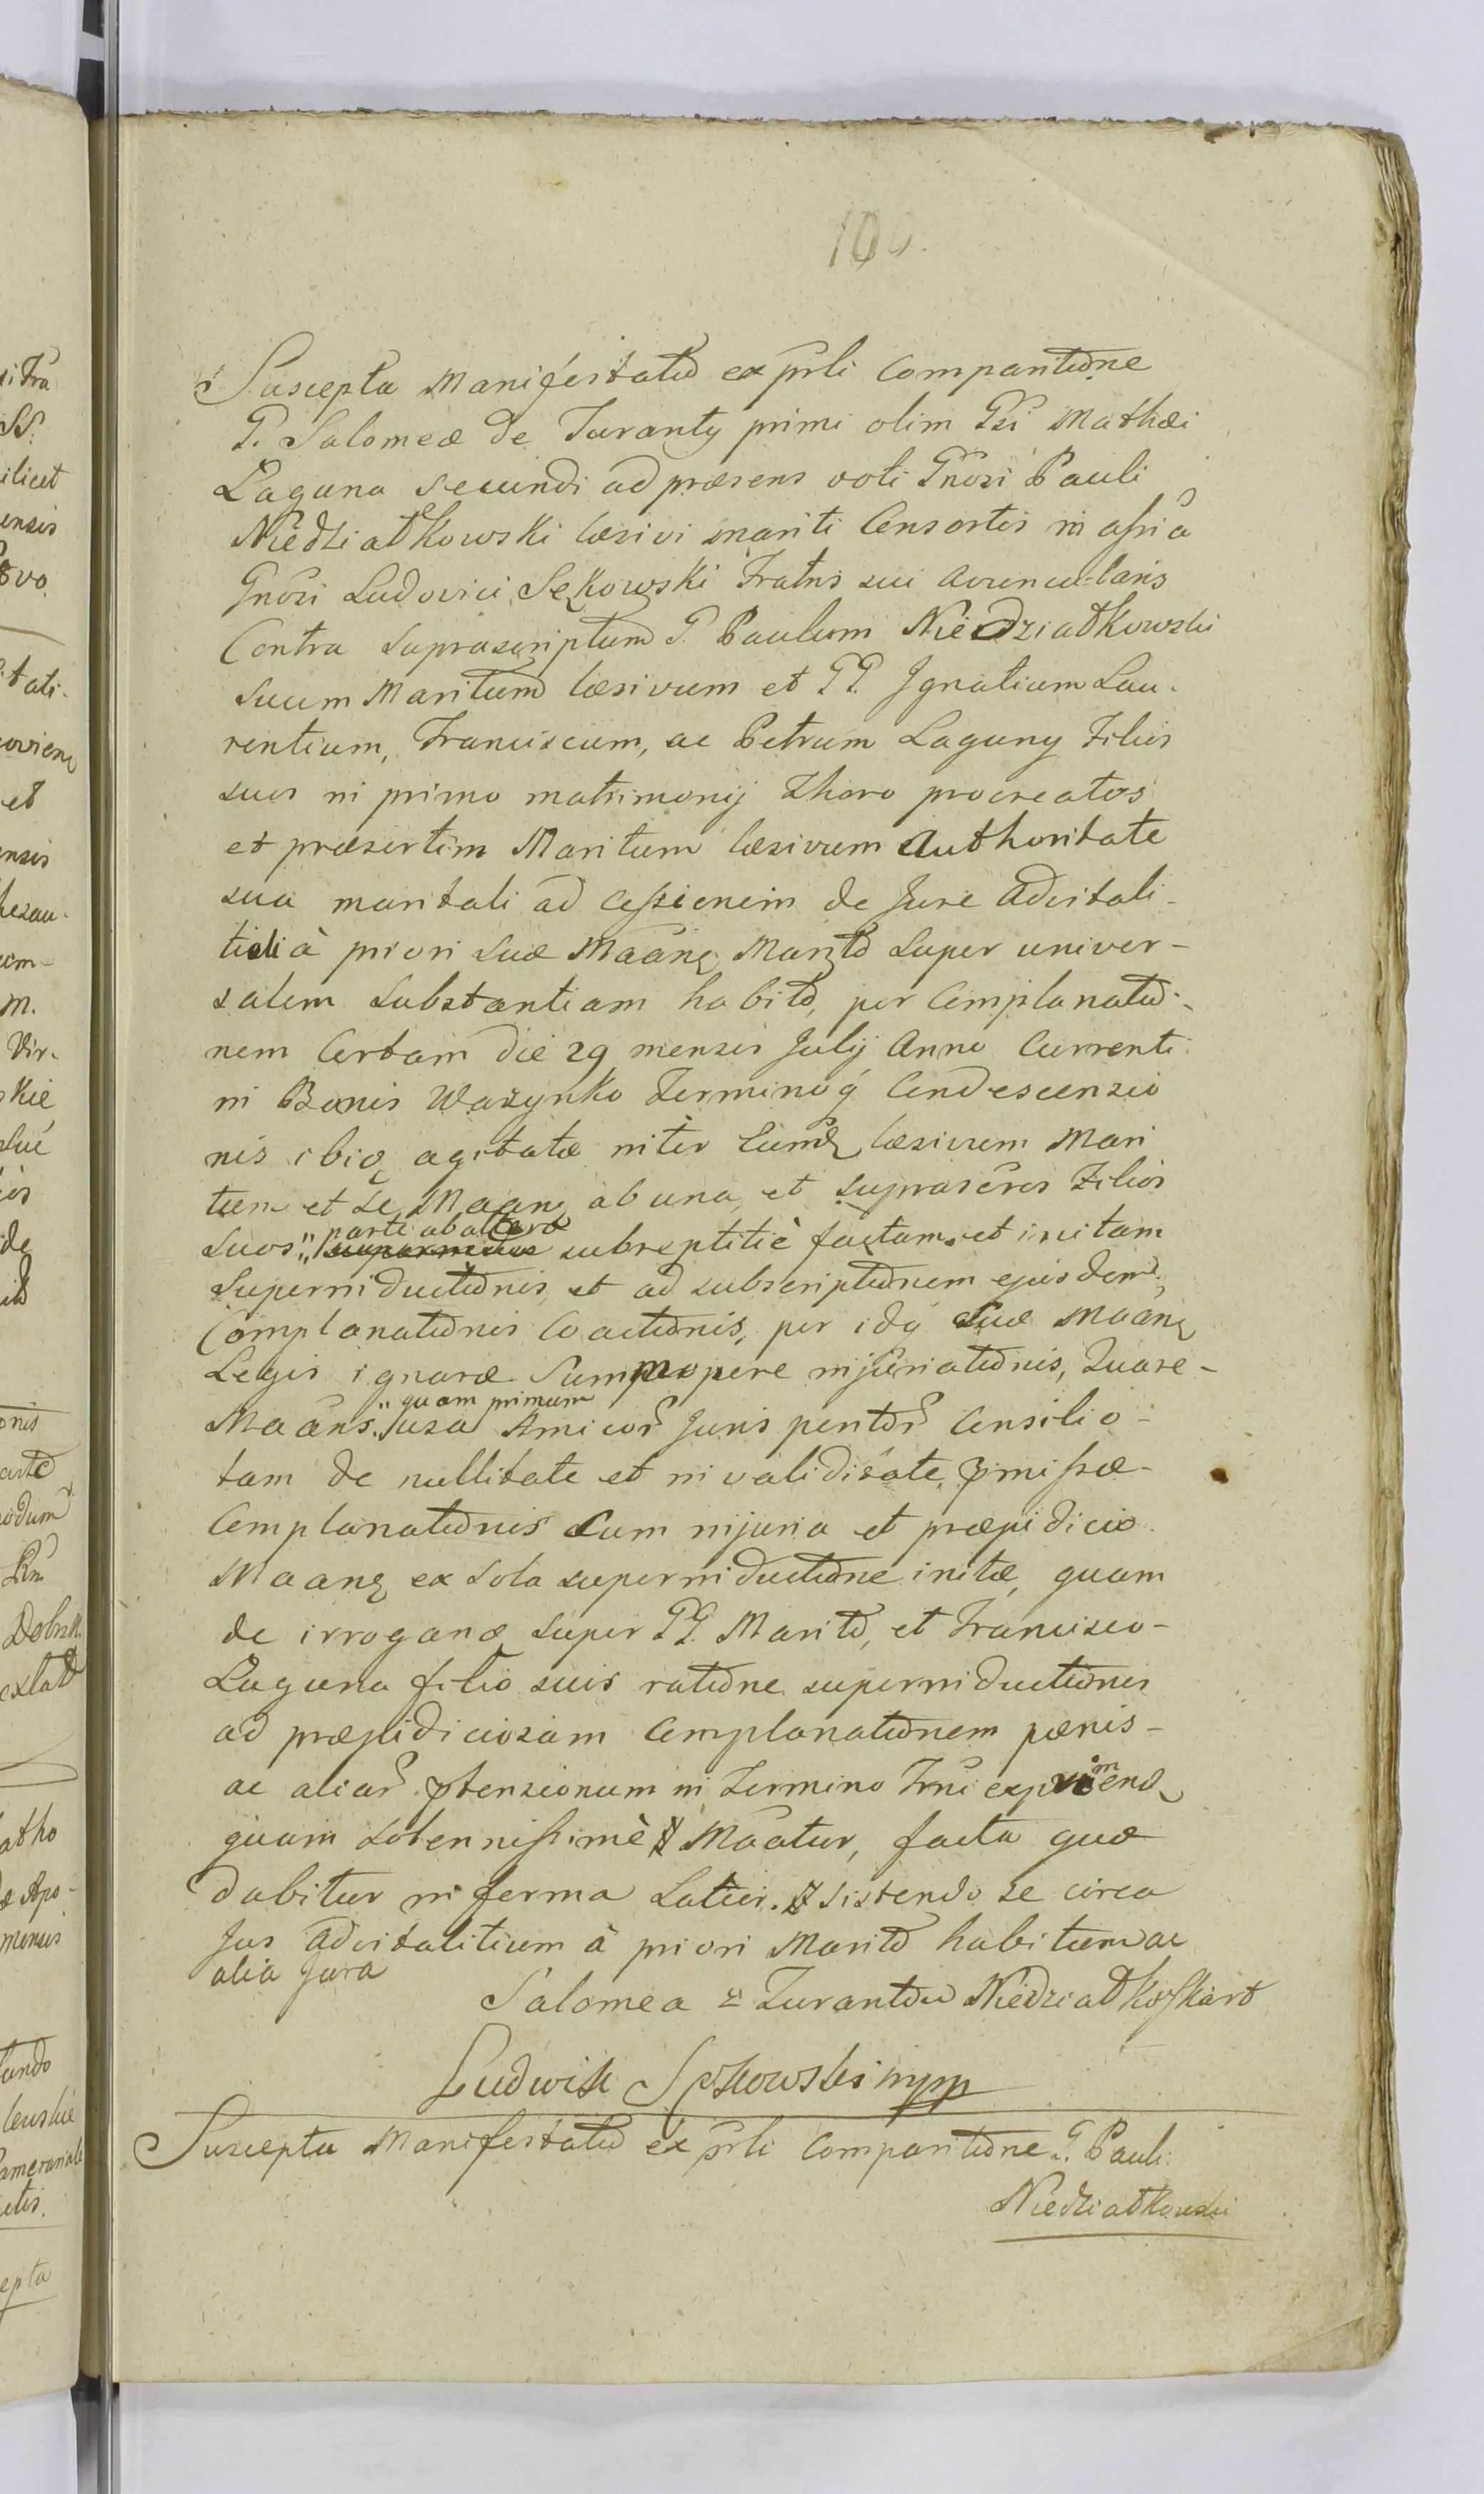 100.
Suscepta Manifestatio ex prli Comparitione
G. Salomeæ de Turanty primi olim Gsi Mathæi
Laguna secundi ad præsens voti Gnosi Pauli
Niedziałkowski læsivi mariti Consortis in assia
Gnosi Ludovici Sękowski Fratris sui avuncularis
Contra suprascriptum G. Paulum Niedziałkowski
suum Maritum læsivum et GG. Ignatium Lau-
rentium, Franciscum, ac Petrum Laguny Filios
suos in primo matrimonij thoro procreatos
et præsertim Maritum læsivum Authoritate
sua maritali ad Cessionem de Jure advitali-
tiali à priori suæ Maang Marito super univer-
salem substantiam habito, per Complanatio-
nem Certam die 29 mensis Julij Anno Currenti
in Bonis Wazynko Termino q Condescensio
nis ibiq agitatæ inter Eumd læsivum Mari
tum et se Maang ab una et suprascros Filios
parte ab altera
suos " subreptitiè factam et initam
superinductionis, et ad subscriptionem ejusdem
Complanationis Coactionis, per idq suæ Maang
Legis ignaræ Summopere injuriationis, Quare-
" quam primum
Maans. usa Amicor Juris peritor Consilio-
tam de nullitate et invaliditate pmissæ-
Complanationis Cum injuria et præjudicio
Maang ex sola superinductione initæ, quam
de irrogand super GG. Marito, et Francisco-
Laguna filio suis ratione superinductionis
ad præjudiciosam Complanationem pænis-
ac aliar ptensionum in Termino Trni exprimend
quam solennissimè Maatur, facta quæ
dabitur in forma Latior. sistendo se circa
Jus advitalitium à priori Marito habitum ac
alia Jura
Salomea z Turantow Niedziałkoskaro
Ludwik Sękowski mpp
Suscepta Manifestatio ex prli Comparitione G. Pauli
Niedziałkowski